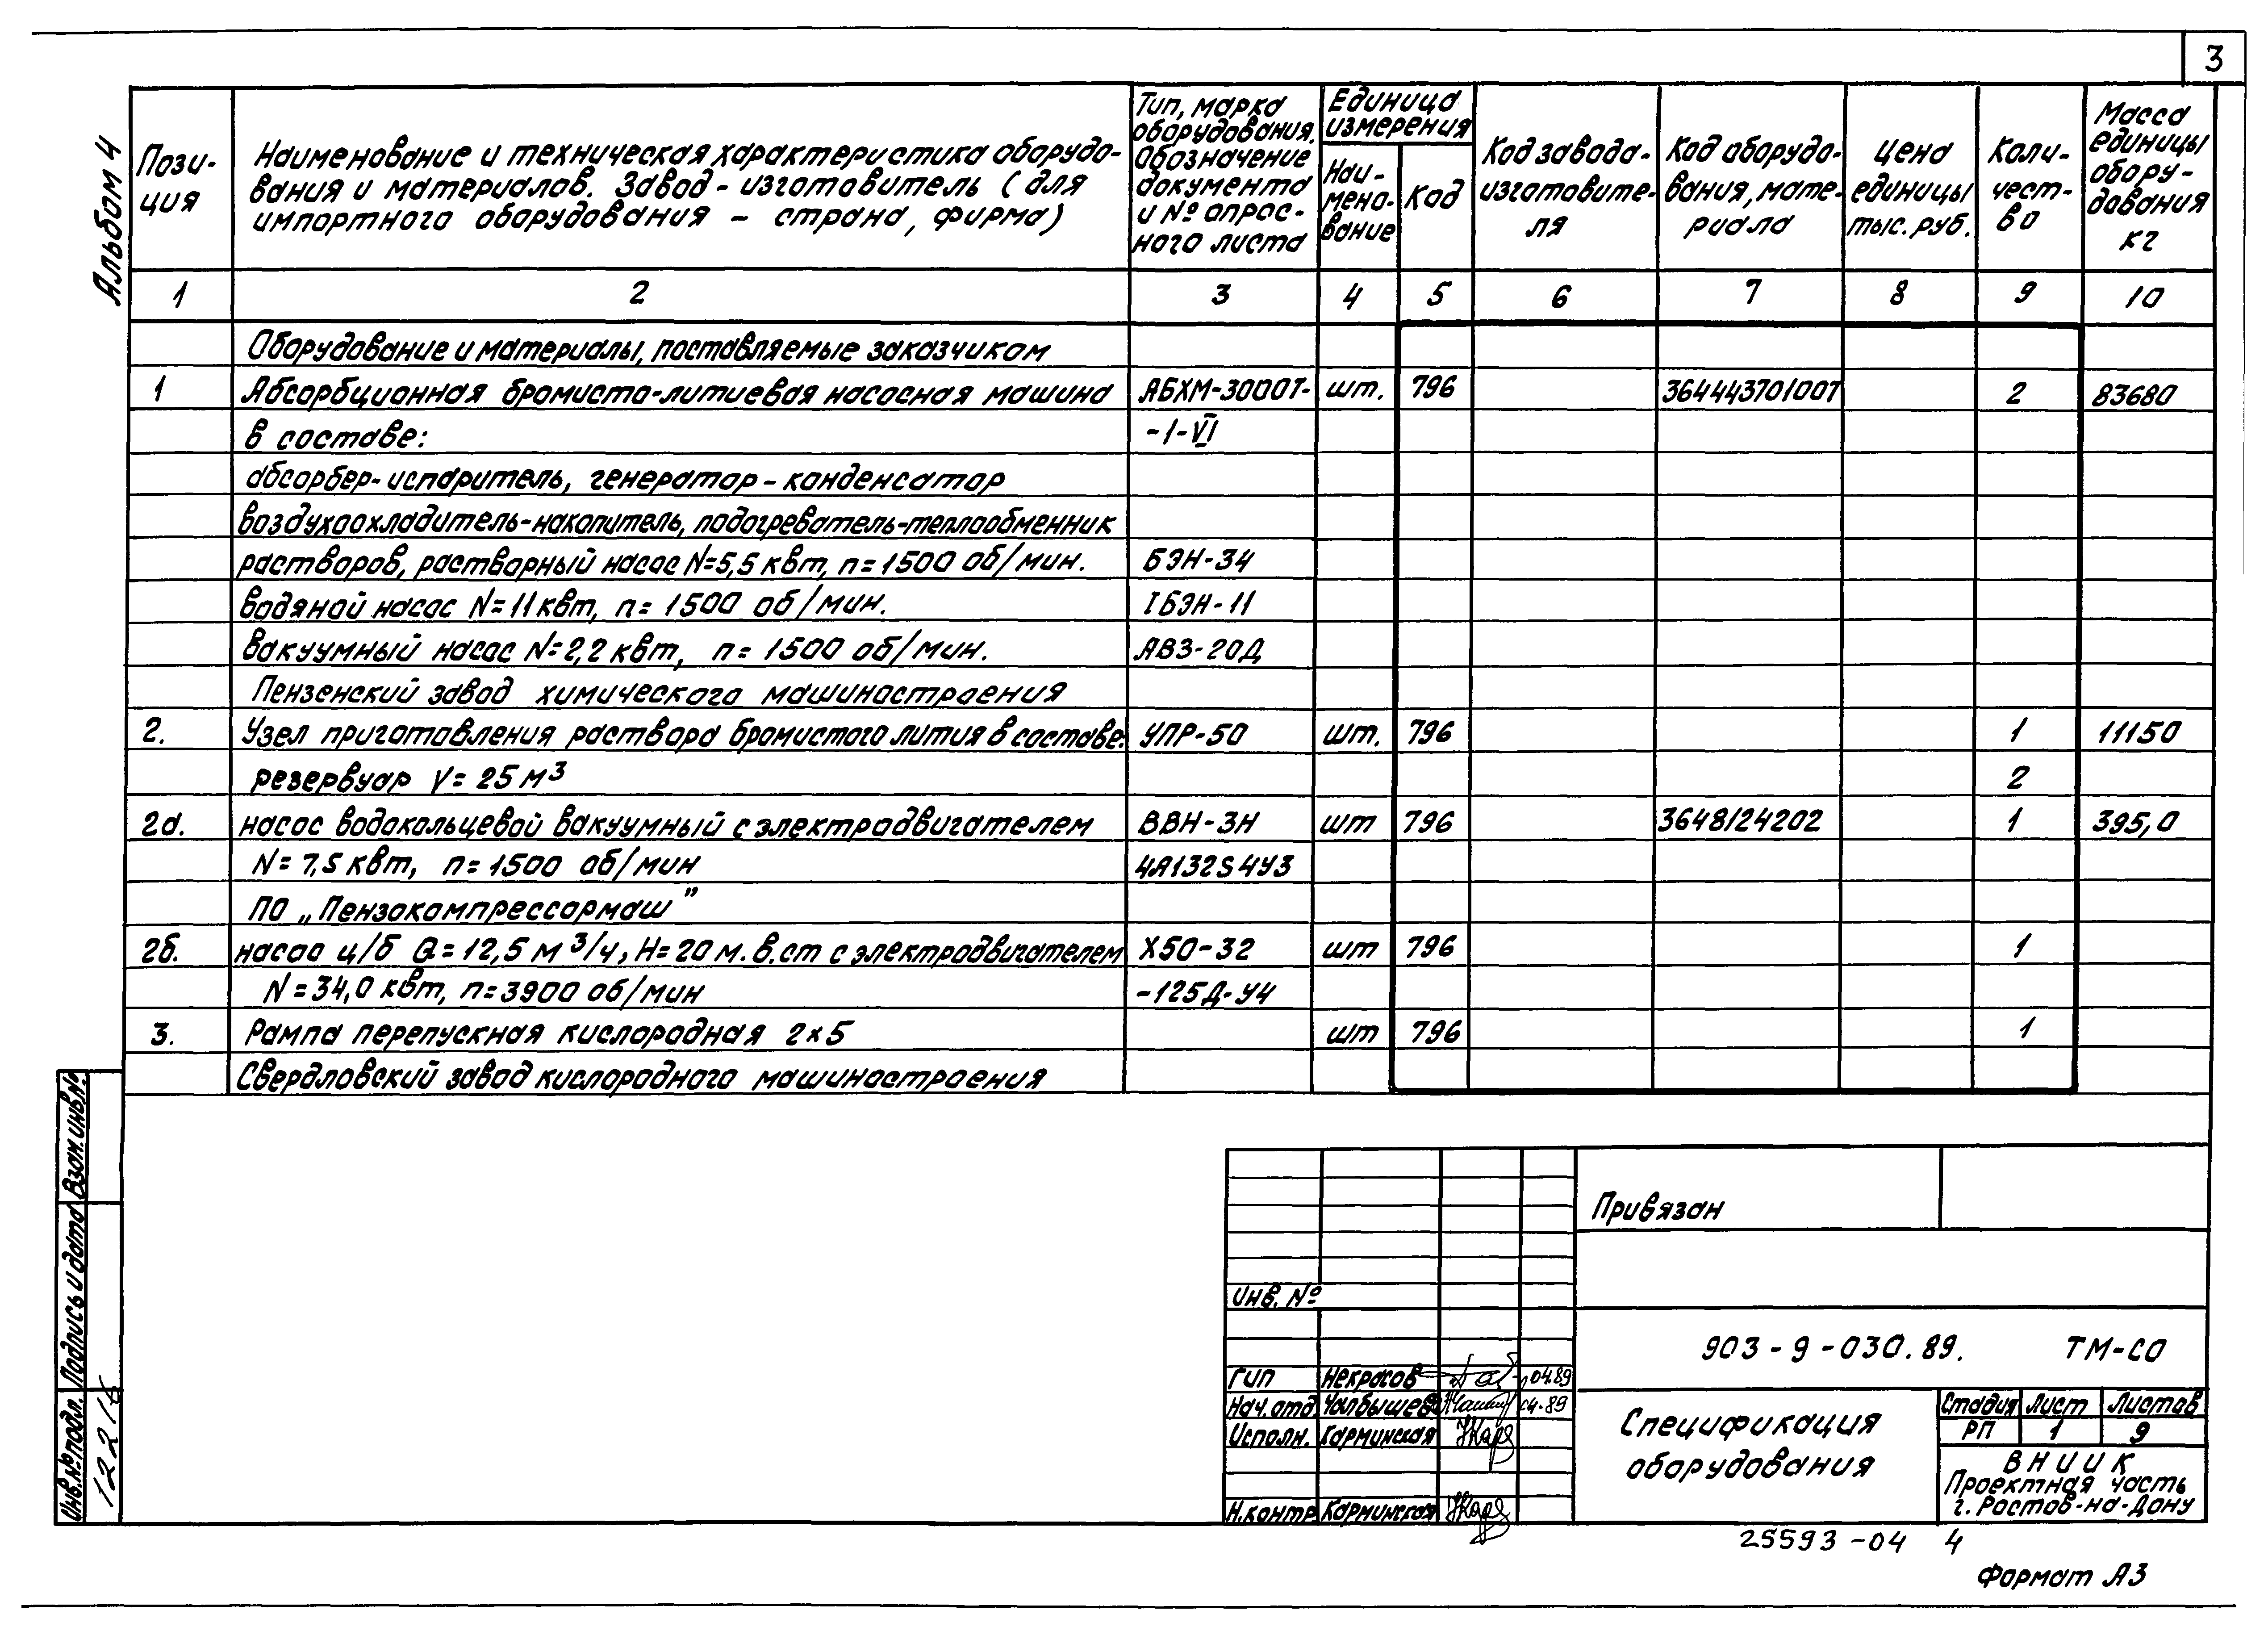 3
Альбом 4
Пози-
ция
Наименование и техническая характеристика оборудо-
вания и материалов. Завод-изготовитель (для
импортного оборудования – страна, фирма)
Тип, марка
оборудования.
Обозначение
документа
и № опрос-
ного листа
Единица
измерения
Наи-
мено-
вание
Код
Код завода-
изготовите-
ля
Код оборудо-
вания, мате-
риала
Цена
единицы
тыс. руб.
Коли-
чест-
во
Масса
единицы
обору-
дования
кг
1 2 3 4 5 6 7 8 9 10
Оборудование и материалы, поставляемые заказчиком
1 Абсорбционная бромисто-литиевая насосная машина АБХМ-3000Т- шт. 796 364443701007 2 83680
в составе: -1-VI
абсорбер-испаритель, генератор-конденсатор
воздухоохладитель-накопитель, подогреватель-теплообменник
растворов, растворный насос N=5,5 квт, n=1500 об/мин. БЭН-34
водяной насос N=11 квт, n=1500 об/мин. 1БЭН-11
вакуумный насос N=2,2 квт, n=1500 об/мин. АВЗ-20Д
Пензенский завод химического машиностроения
2. Узел приготовления раствора бромистого лития в составе: УПР-50 шт. 796 1 11150
резервуар V=25 м³ 2
2а. насос водокольцевой вакуумный с электродвигателем ВВН-3Н шт 796 3648124202 1 395,0
N=7,5 квт, n=1500 об/мин 4А132S4У3
ПО „Пензокомпрессормаш”
2б. насос ц/б Q=12,5 м³/ч, H=20 м.в.ст с электродвигателем Х50-32 шт 796 1
N=34,0 квт, n=3900 об/мин -125Д-У4
3. Рампа перепускная кислородная 2×5 шт 796 1
Свердловский завод кислородного машиностроения
Взам. инв. №
Подпись и дата
Инв. № подл.
Привязан
Инв. №
903-9-030.89. ТМ-СО
ГИП Некрасов 04.89
Нач. отд. Чалбышев 04.89
Исполн. Карминская
Н. контр. Карминская
Спецификация
оборудования
Стадия Лист Листов
РП 1 9
ВНИИК
Проектная часть
г. Ростов-на-Дону
25593-04 4
Формат А3